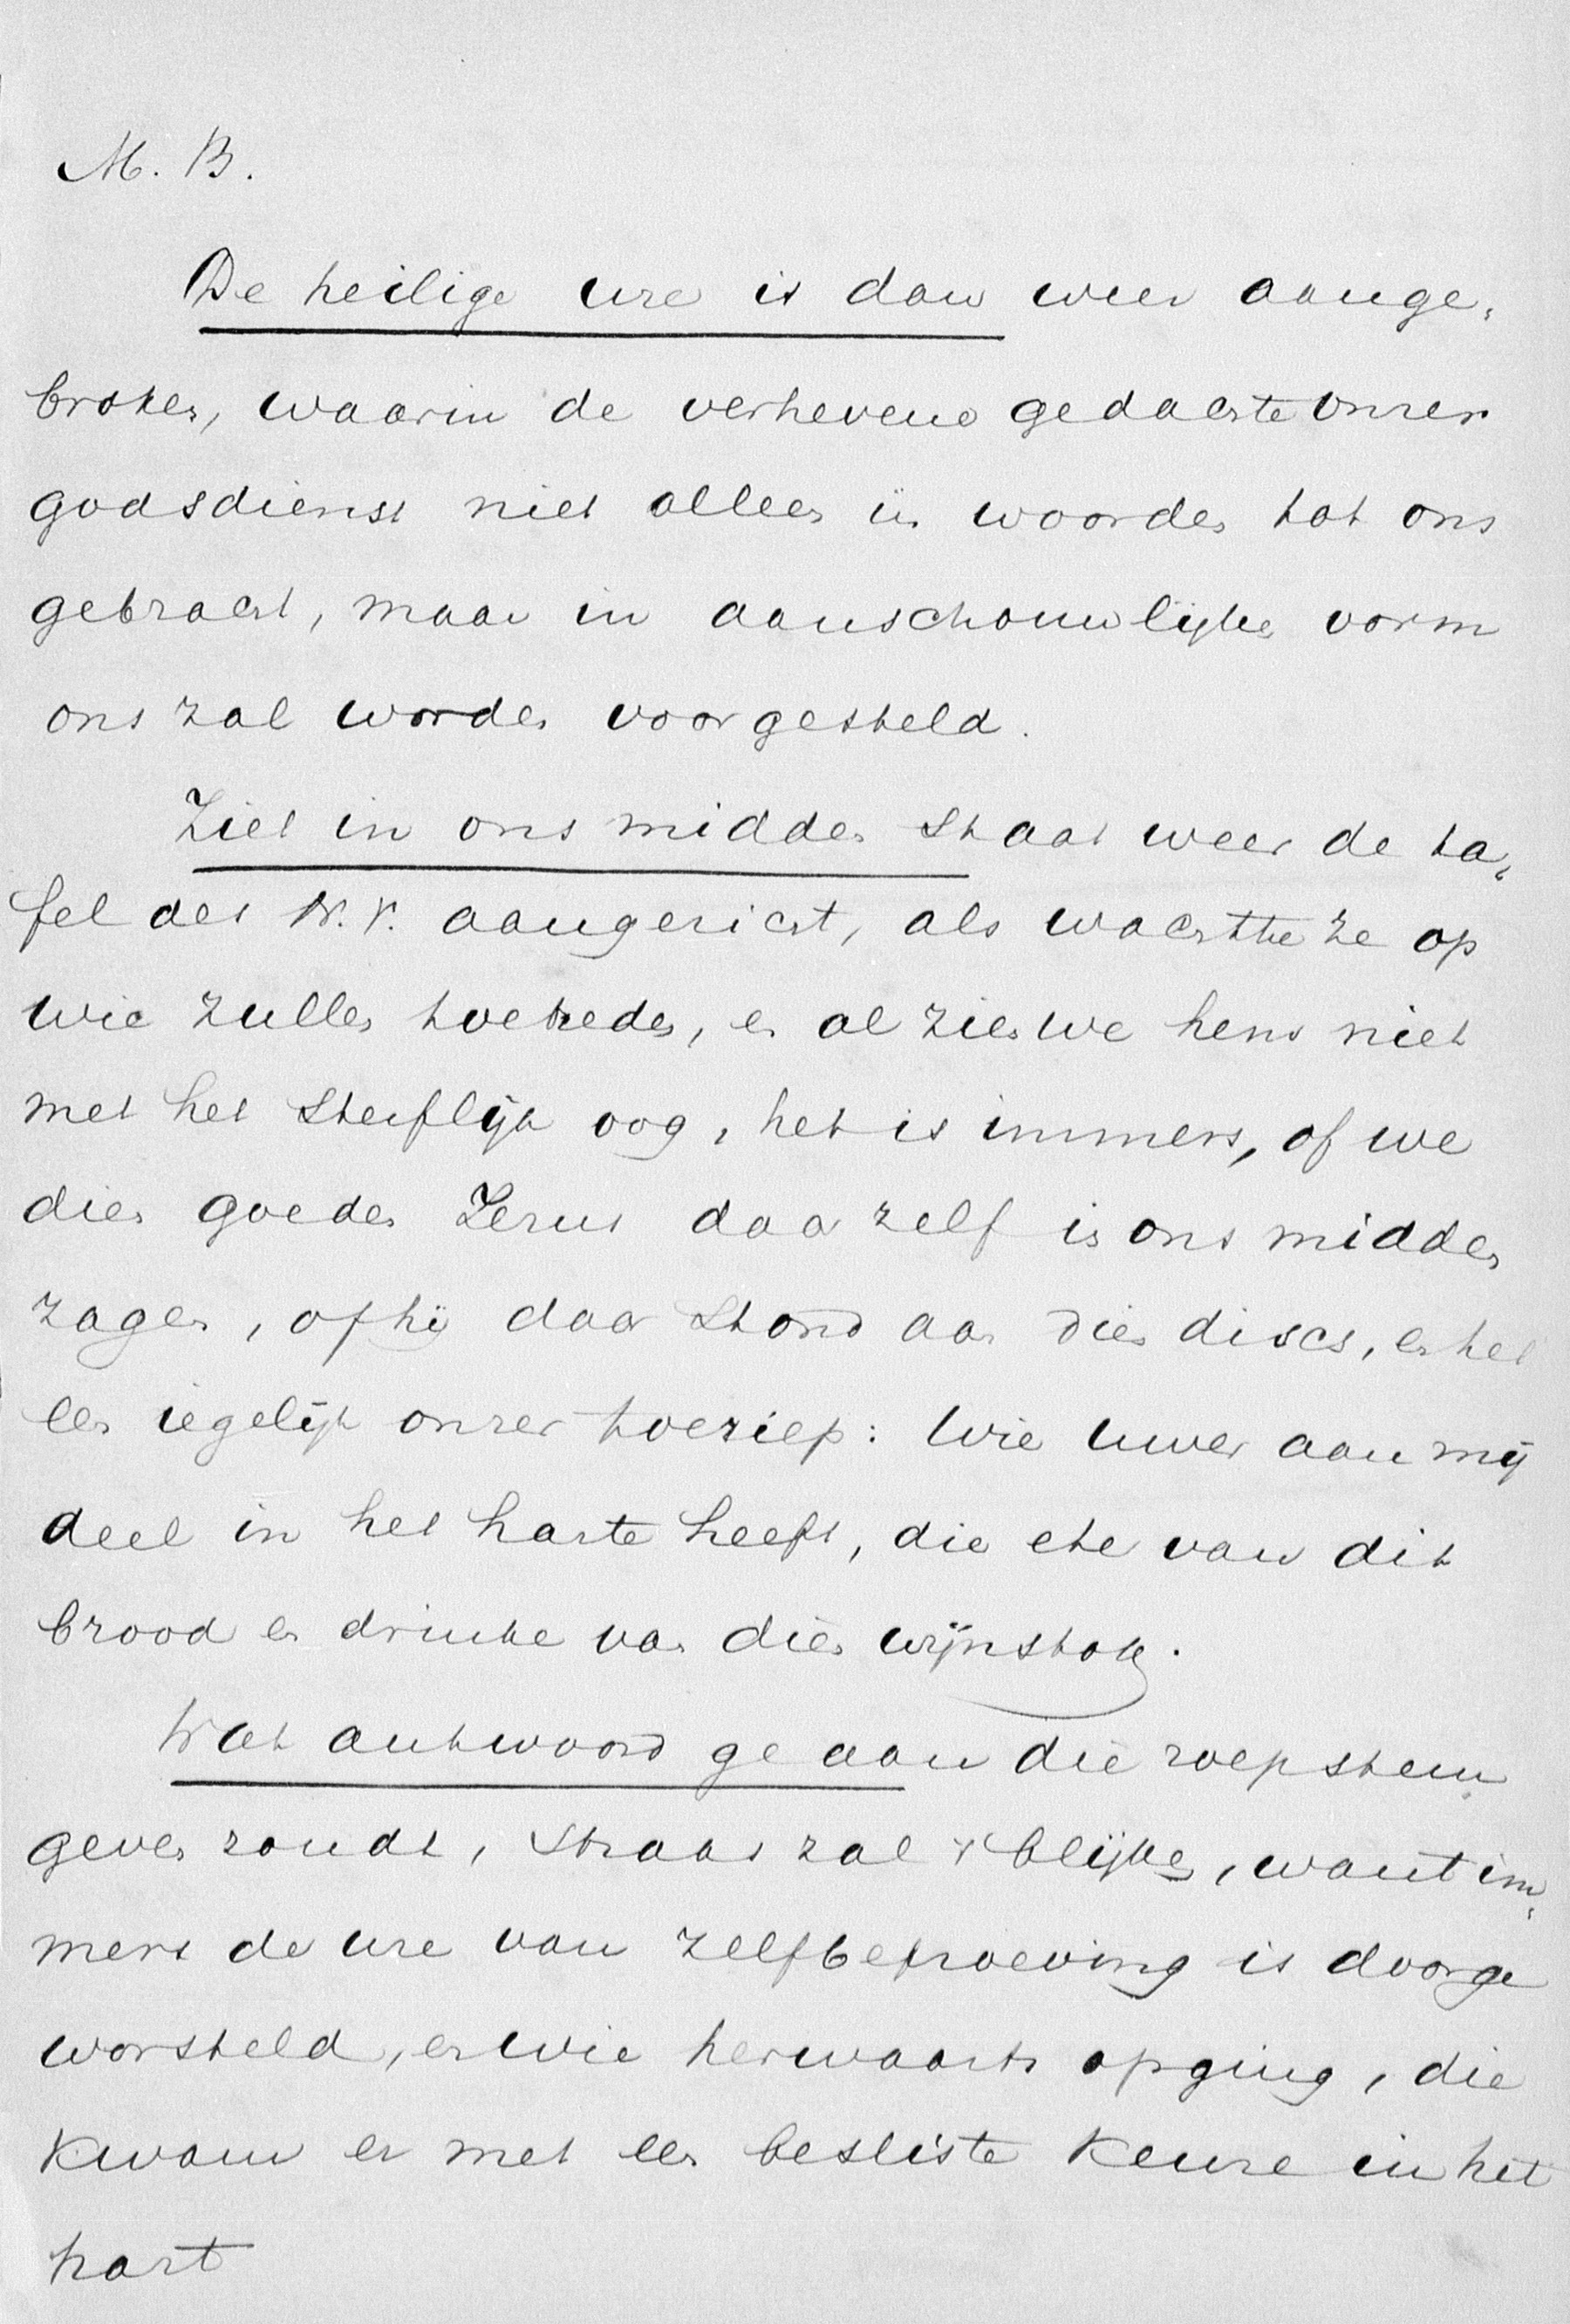 M. B.
De heilige ure is dan weer aange-
broken, waarin de verhevene gedachte onzer
godsdienst niet alleen in woorden tot ons
gebracht, maar in aanschouwlijke vorm
ons zal worden voorgesteld.
Ziet in ons midden staat weer de ta-
fel des N. V. aangericht, als wachtte ze op
wie zullen toetreden, en al zien we hem niet
met het sterflijk oog, het is immers, of we
dien goeden Jezus daar zelf in ons midden
zagen, of hij daar stond aan dien disch, en het
een iegelijk onzer toeriep: Wie uwer aan mij
deel in het harte heeft, die ete van dit
brood en drinke van dien wijnstok.
Wat antwoord ge aan die roepstem
geven zoudt, straks zal 't blijken, want im-
mers de ure van zelfbeproeving is doorge
worsteld, en wie herwaarts opging, die
kwam er met een besliste keuze in het
hart